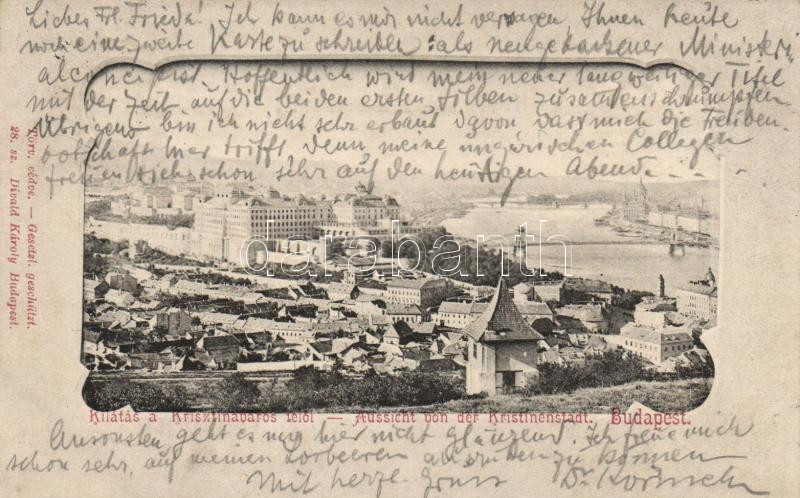 Liebes Frl. Frieda! Ich kann es mir nicht versagen, Ihnen heute
noch eine zweite Karte zu schreiben: als neugebackener Ministeri
alconcipist. Hoffentlich wird mein neuer langweiliger Titel
mit der Zeit auf die beiden ersten Silben zusammenschrumpfen
Übrigens bin ich nicht sehr erbaut davon dass mich die Freuden
botschaft hier trifft, denn meine ungarischen Collegen
freuen sich schon sehr auf den heutigen Abend.
Törv. védve. — Gesetzl. geschützt.
28. sz. Divald Károly Budapest.
darabanth
Kilátás a Krisztinaváros felől — Aussicht von der Kristinenstadt. Budapest.
Ansonsten geht es mir hier nicht glänzend. Ich freue mich
schon sehr, auf meinen Lorbeeren ausruhen zu können
Mit herzl. Gruss Dr.